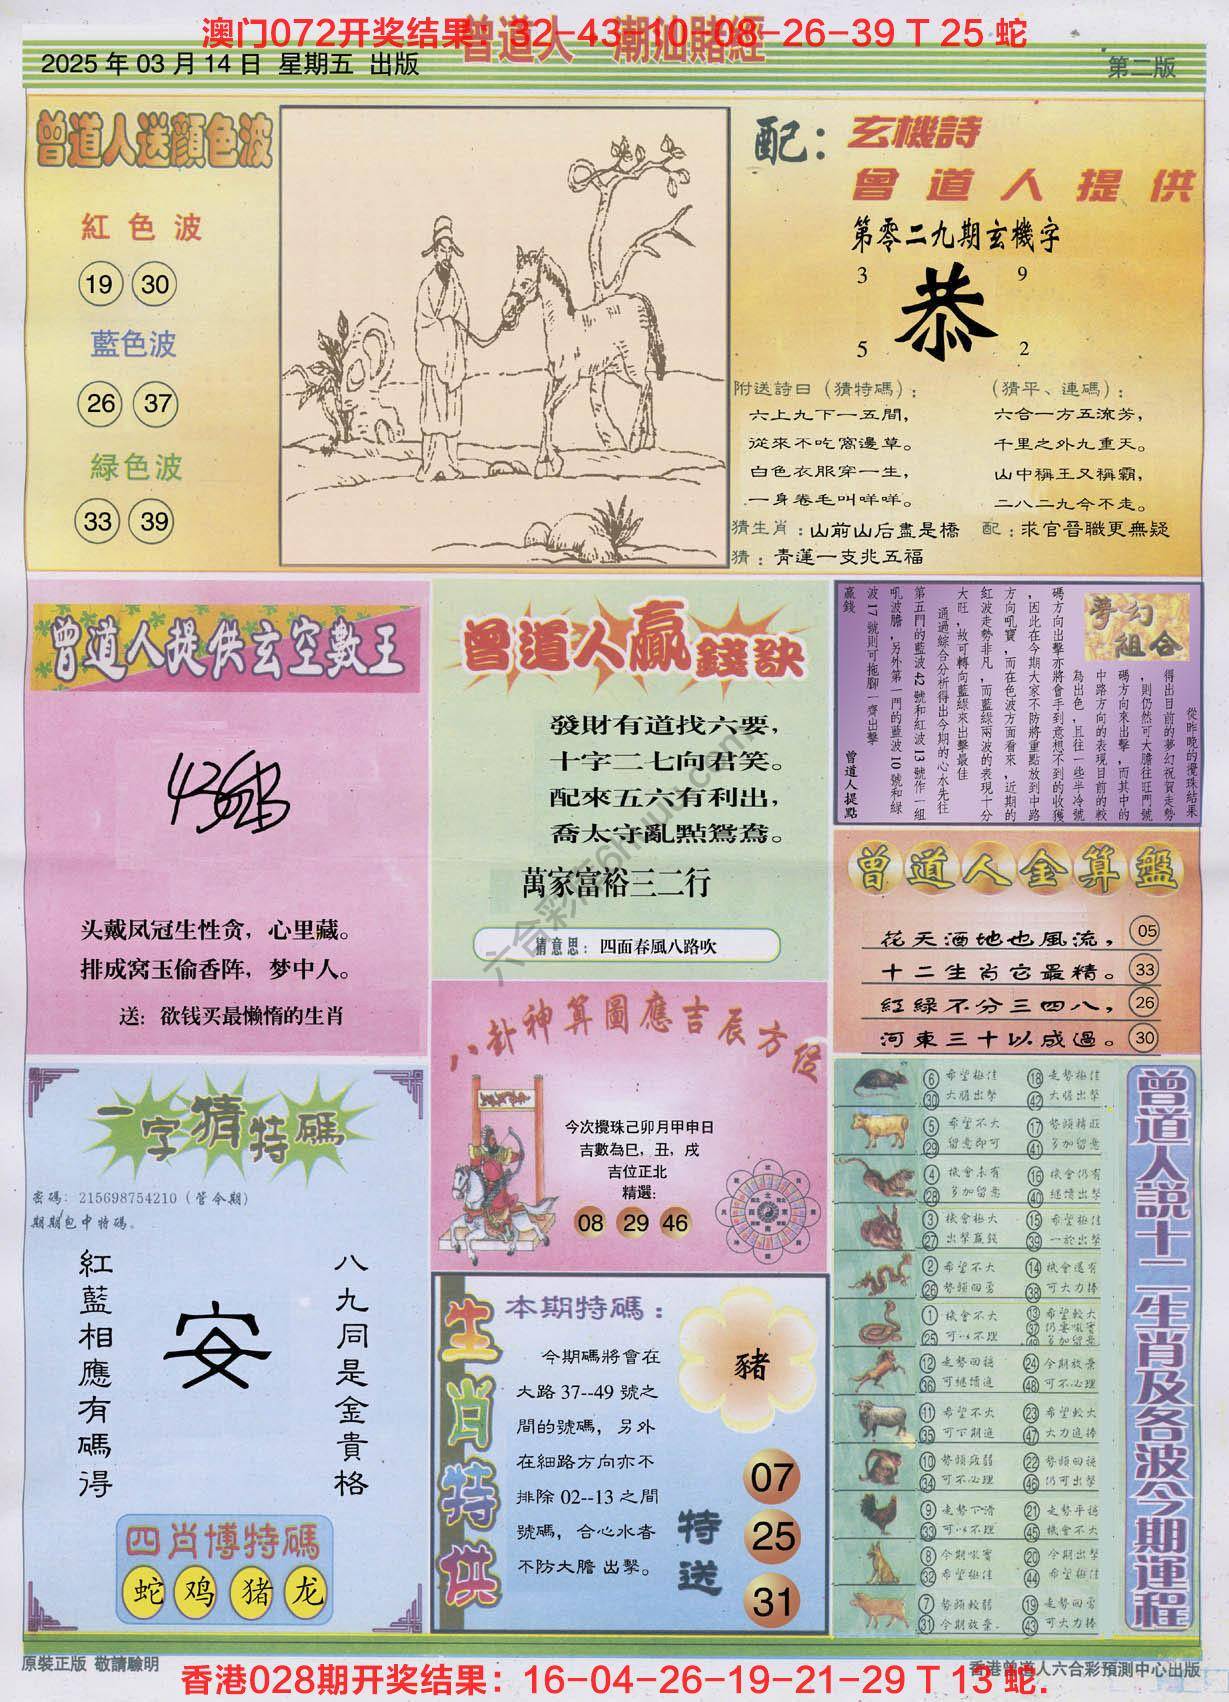 澳门072开奖结果：32-43-10-08-26-39 T 25 蛇
曾道人 潮汕賭經
2025 年 03 月 14 日 星期五 出版
第二版
曾道人送顔色波
紅 色 波
19 30
藍色波
26 37
緑色波
33 39
配：
玄機詩
曾 道 人 提 供
第零二九期玄機字
3 9
恭
5 2
附送詩曰（猜特碼）：
六上九下一五間，
從來不吃窩邊草。
白色衣服穿一生，
一身卷毛叫咩咩。
（猜平、連碼）：
六合一方五流芳，
千里之外九重天。
山中稱王又稱霸，
二八二九今不走。
猜生肖：山前山后盡是橋
配：求官晉職更無疑
猜：青蓮一支兆五福
曾道人提供玄空數王
头戴凤冠生性贪，心里藏。
排成窝玉偷香阵，梦中人。
送：欲钱买最懒惰的生肖
曾道人贏錢訣
發財有道找六要，
十字二七向君笑。
配來五六有利出，
喬太守亂點鴛鴦。
萬家富裕三二行
猜意思：四面春風八路吹
夢幻組合
從昨晚的攪珠結果
得出目前的夢幻祝賀走勢
，則仍然可大膽往旺門號
碼方向來出擊，而其中的
中路方向的表現目前的較
為出色，且往一些半冷號
碼方向出擊亦將會手到意想不到的收獲
，因此在今期大家不防將重點放到中路
方向吼寶，而在色波方面看來，近期的
紅波走勢非凡，而藍綠兩波的表現十分
大旺，故可轉向藍綠來出擊最佳
通過綜合分析得出今期的心水先往
第五門的藍波 42 號和紅波 13 號作一組
吼波膽，另外第一門的藍波 10 號和綠
波 17 號則可拖腳一齊出擊
贏錢
曾道人提點
曾道人金算盤
花天酒地也風流， 05
十二生肖它最精。 33
紅綠不分三四八， 26
河東三十以成過。 30
八卦神算圖應吉辰方位
今次攪珠己卯月甲申日
吉數為巳，丑，戌
吉位正北
精選：
08 29 46
一字猜特碼
密碼：215698754210（管令期）
期期包中特碼。
八九同是金貴格
安
紅藍相應有碼得
四肖博特碼
蛇 鸡 猪 龙
生肖特供
本期特碼：
今期碼將會在
大路 37--49 號之
間的號碼，另外
在細路方向亦不
排除 02--13 之間
號碼，合心水者
不防大膽 出擊。
豬
特送
07
25
31
曾道人説十二生肖及各波今期運程
6 希望極佳 18 走勢極佳
30 大膽出擊 42 大膽出擊
5 希望不大 17 勢頭精旺
29 留意即可 41 多加留意
4 機會未有 16 機會仍有
28 多加留意 40 繼續出擊
3 機會極大 15 希望極佳
27 出擊贏錢 39 一於出擊
2 希望不大 14 機會還有
26 勢頭回勇 38 可大力捧
1 機會不大 13 希望較大
25 可以不理 37 仍要吼實
49 多加留意
12 走勢回穩 24 今期放棄
36 可繼續追 48 可不必理
11 希望不大 23 希望較大
35 可下期追 47 大力追捧
10 勢頭疲弱 22 勢頭回穩
34 可不必理 46 仍可出擊
9 走勢下滑 21 走勢平穩
33 可以不理 45 機會不大
8 今期吼實 20 今期出擊
32 希望極佳 44 希望極佳
7 勢頭較弱 19 走勢回勇
31 今期放棄. 43 可大力捧
原裝正版 敬請驗明
香港028期开奖结果：16-04-26-19-21-29 T 13 蛇.
香港曾道人六合彩預測中心出版